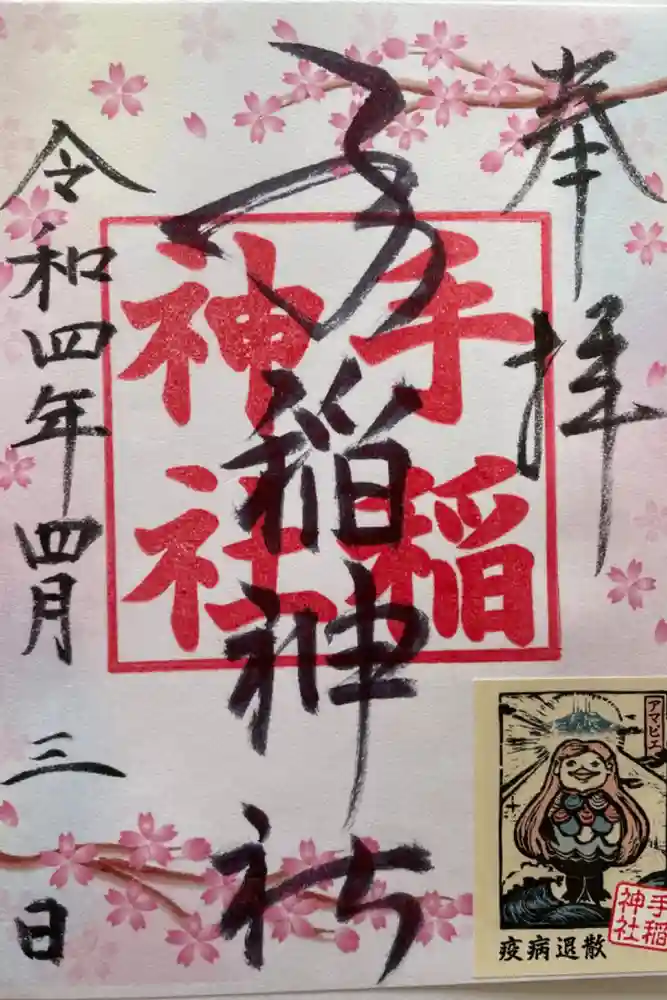 奉拝
手稲神社
手稲神社
令和四年四月三日
アマビエ
疫病退散
手稲神社